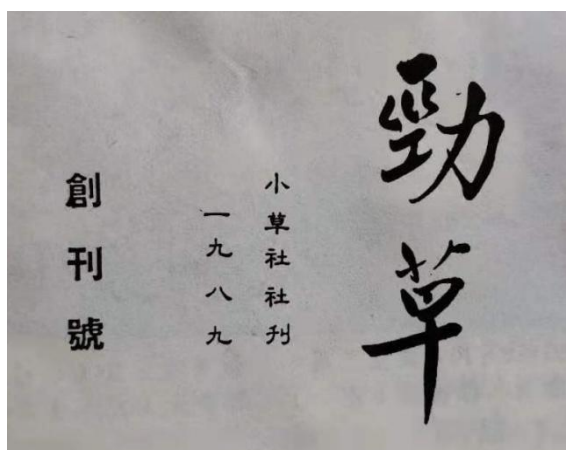 勁草
小草社社刊
一九八九
創刊號